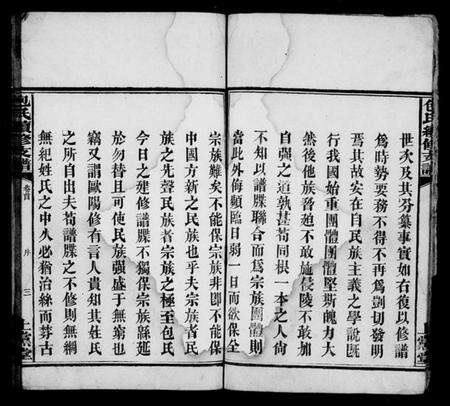 包氏續修支譜
世次及其芬墓事實如右復以修譜
爲時勢要務不得不再爲剴切發明
焉其故安在自民族主義之學說既
行我國始重團體團體堅斯魄力大
然後他族脅迫不敢施侵陵不敢加
自强之道孰甚苟同根一本之人尙
不知以譜牒聯合而爲宗族團體則
當此外侮頻臨日弱一日而欲保全
宗族難矣不能保宗族非卽不能保
中國方新之民族也乎夫宗族者民
族之先聲民族者宗族之極至包氏
今日之建修譜牒不獨保宗族緜延
於勿替且可使民族强盛于無窮也
竊又謂歐陽修有言人貴知其姓氏
之所自出夫苟譜牒之不修則無綱
無紀姓氏之中久必猶治絲而棼古
包氏續修支譜
卷首
序
三
上黨堂